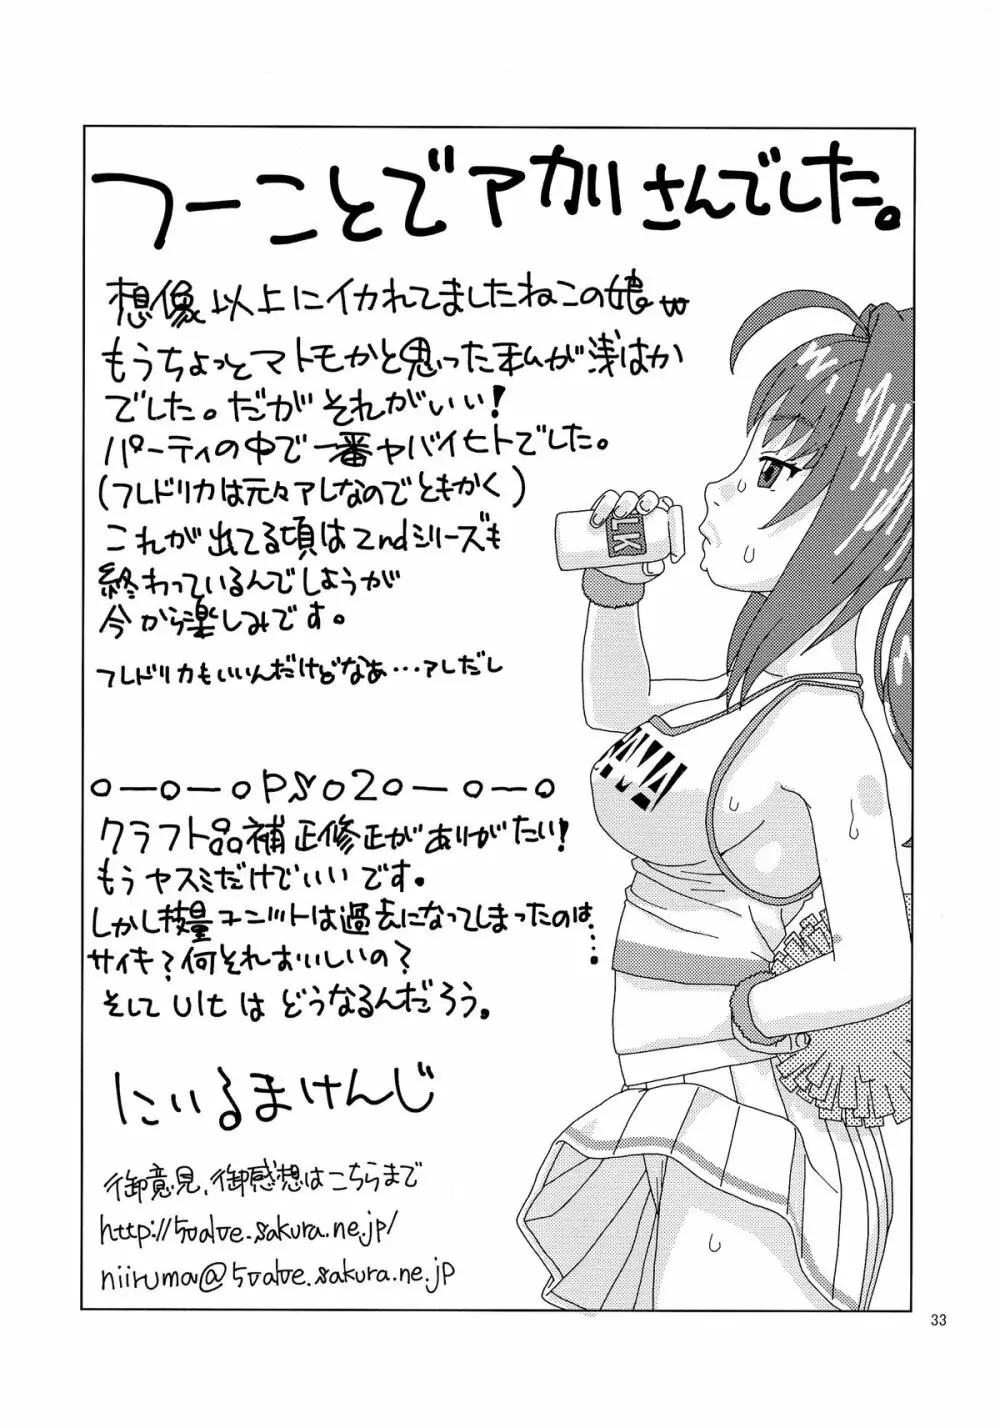 つーことでアカリさんでした。
想像以上にイカれてましたねこの娘w
もうちょっとマトモかと思った私が浅はか
でした。だがそれがいい!
パーティの中で一番ヤバイヒトでした。
(フレドリカは元々アレなのでともかく)
これが出てる頃は2ndシリーズも
終わっているんでしょうが
今から楽しみです。
フレドリカもいいんだけどなぁ…アレだし
LK
o-o-oPSO2o-o-o
クラフト品補正修正がありがたい!
もうヤスミだけでいいです。
しかし技量ユニットは過去になってしまったのは…
サイキ?何それおいしいの?
そしてUltはどうなるんだろう。
にいるまけんじ
御意見、御感想はこちらまで
http://5valve.sakura.ne.jp/
niiruma@5valve.sakura.ne.jp
33